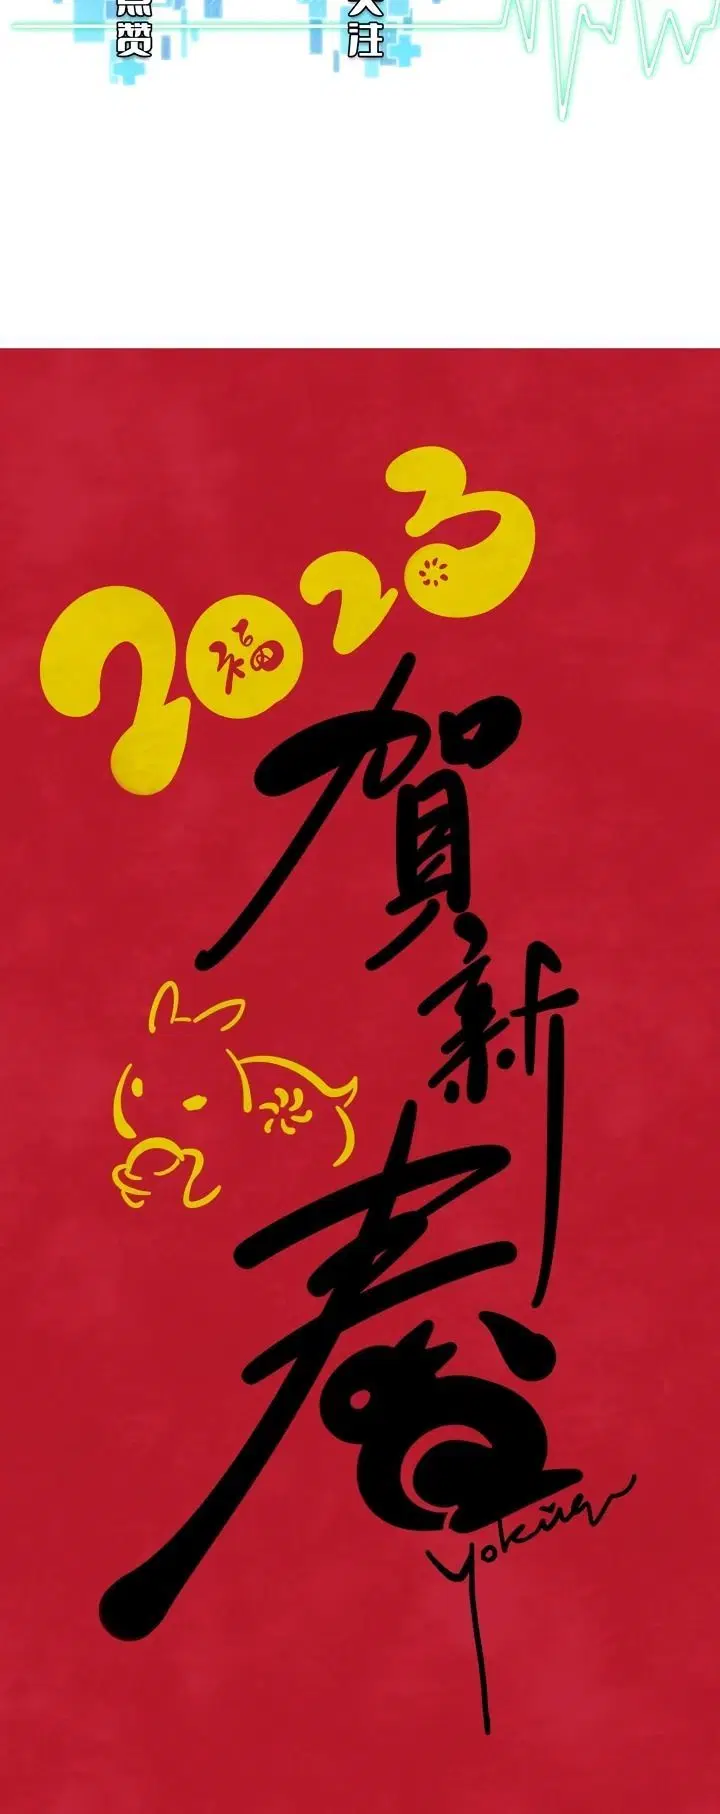 点赞
关注
2023
福
賀新春
Yoküa